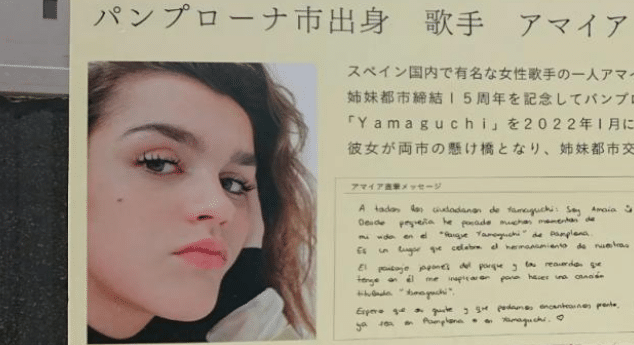 パンプローナ市出身　歌手　アマイア
スペイン国内で有名な女性歌手の一人アマイ
姉妹都市締結１５周年を記念してパンプロ
「Ｙａｍａｇｕｃｈｉ」を２０２２年１月に
彼女が両市の懸け橋となり、姉妹都市交
アマイア直筆メッセージ
A todos los ciudadanos de Yamaguchi: Soy Amaia
Desde pequeña he pasado muchos momentos de
mi vida en el "Parque Yamaguchi" de Pamplona.
Es un lugar que celebra el hermanamiento de nuestras
El paisaje japonés del parque y los recuerdos que
tengo en él me inspiraron para hacer una canción
titulada "Yamaguchi".
Espero que os guste y que podamos encontrarnos pronto,
ya sea en Pamplona o en Yamaguchi. ♡